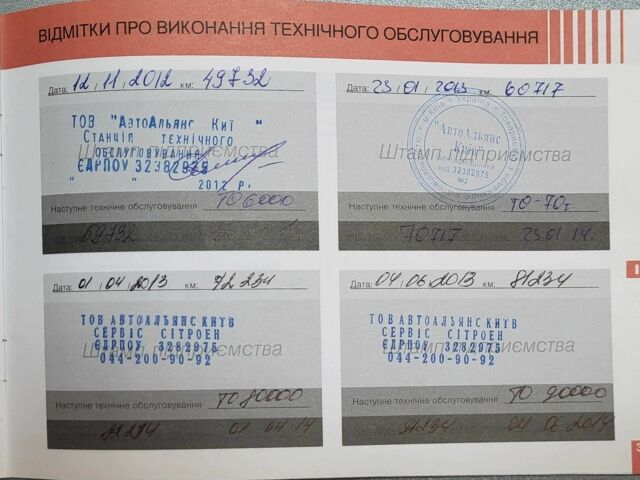 ВІДМІТКИ ПРО ВИКОНАННЯ ТЕХНІЧНОГО ОБСЛУГОВУВАННЯ
Дата: 12, 11, 2012 км: 49732
ТОВ "АвтоАльянс Киї "
Станція технічного
обслуговування
ЄДРПОУ 32382975
" " 2012 р.
Штамп підприємства
Наступне технічне обслуговування ТО 6000
59732
Дата: 23, 01, 2013 км: 60717
"АвтоАльянс
Київ"
код 32382975
№2
Штамп підприємства
Наступне технічне обслуговування ТО-70т
70717 23.01.14.
Дата: 01, 04, 2013 км: 72 234
ТОВ АВТОАЛЬЯНС КИЇВ
СЕРВІС СІТРОЕН
ЄДРПОУ 3282975
044-200-90-92
Штамп підприємства
Наступне технічне обслуговування ТО 80000
01 04 14
Дата: 04, 06, 2013 км: 81234
ТОВ АВТОАЛЬЯНС КИЇВ
СЕРВІС СІТРОЕН
ЄДРПОУ 3282975
044-200-90-92
Штамп підприємства
Наступне технічне обслуговування ТО 90000
91234 04 06 2014